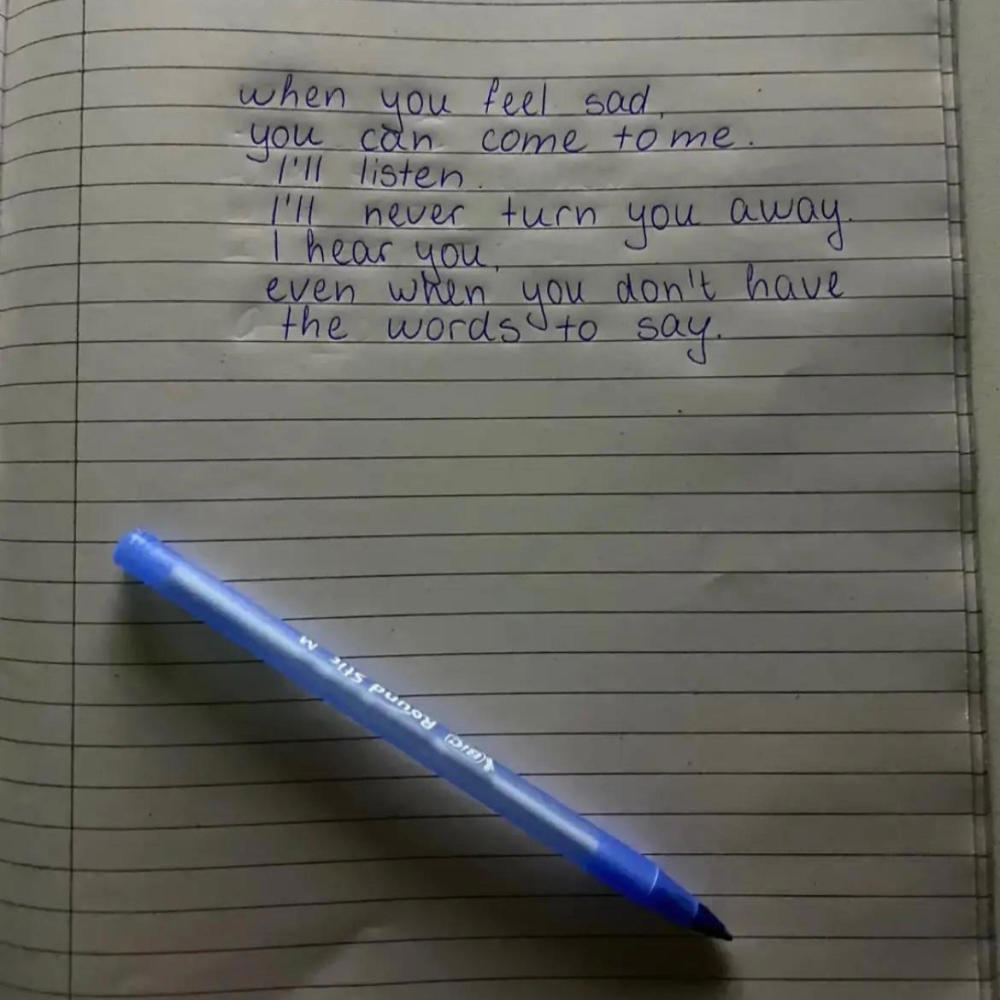 when you feel sad,
you can come to me.
I'll listen.
I'll never turn you away.
I hear you,
even when you don't have
the words to say.
BIC Round Stic M